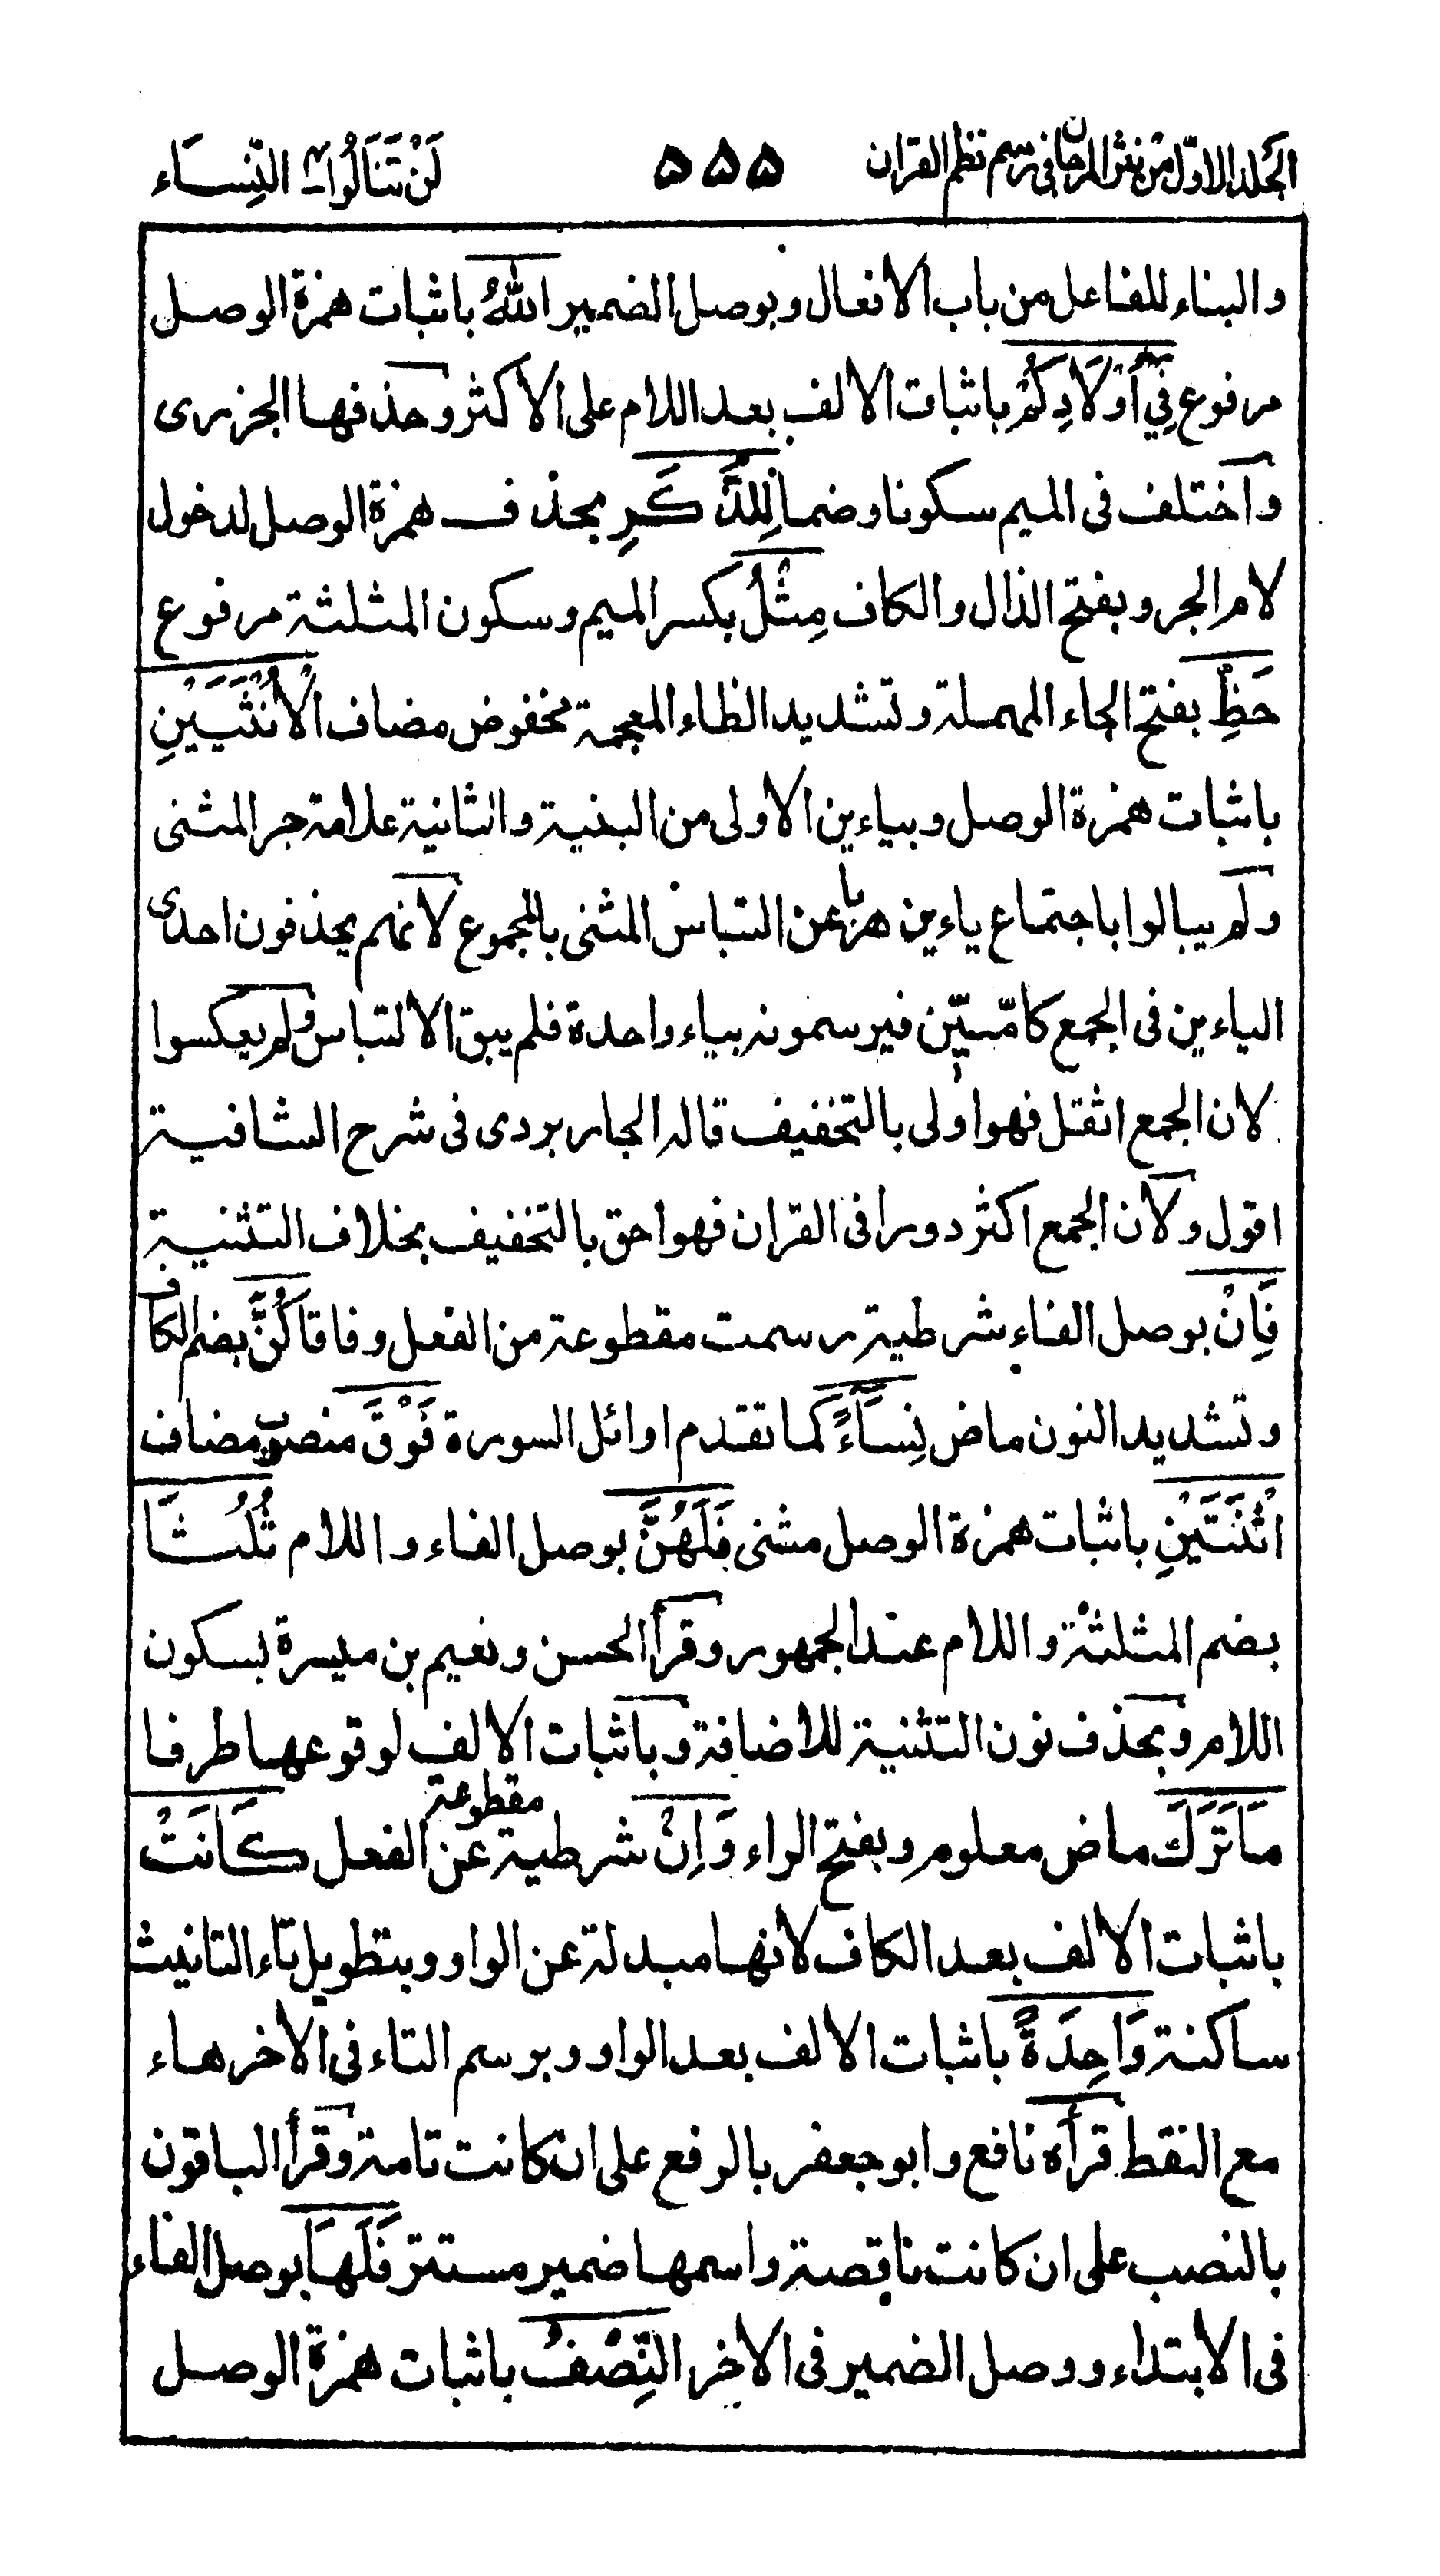 الجلد الاول من نثر المرجان فی رسم نظم القران ۵۵۵ لَنْ تَنَالُوا النِّسَاء
والبناء للفاعل من باب الافعال وبوصل الضمیر اللّٰهُ باثبات همزة الوصل
مرفوع فِیْ اَوْلَادِكُمْ باثبات الالف بعد اللام علی الاکثر وحذفها الجزری
واختلف فی المیم سکونا وضما لِلذَّكَرِ بحذف همزة الوصل لدخول
لام الجر وبفتح الذال والکاف مِثْلُ بکسر المیم وسکون المثلثة مرفوع
حَظِّ بفتح الحاء المهملة وتشدید الظاء المعجمة مخفوض مضاف الْاُنْثَیَیْنِ
باثبات همزة الوصل وبیاءین الاولی من البنیة والثانیة علامة جر المثنی
ولم یبالوا باجتماع یاءین هربا عن التباس المثنی بالمجموع لانهم یحذفون احدی
الیاءین فی الجمع کامّیّن فیرسمونه بیاء واحدة فلم یبق الالتباس ولم یعکسوا
لان الجمع اثقل فهو اولی بالتخفیف قاله الجاربردی فی شرح الشافیة
اقول ولان الجمع اکثر دورا فی القران فهو احق بالتخفیف بخلاف التثنیة
فَاِنْ بوصل الفاء شرطیة رسمت مقطوعة من الفعل وفاقا كُنَّ بضم الکاف
وتشدید النون ماض نِسَاءً کما تقدم اوائل السورة فَوْقَ منصوب مضاف
اثْنَتَیْنِ باثبات همزة الوصل مثنی فَلَهُنَّ بوصل الفاء واللام ثُلُثَا
بضم المثلثة واللام عند الجمهور وقرأ الحسن ونعیم بن میسرة بسکون
اللام وبحذف نون التثنیة للاضافة وباثبات الالف لوقوعها طرفا
مَا تَرَكَ ماض معلوم وبفتح الراء وَاِنْ شرطیة مقطوعة عن الفعل كَانَتْ
باثبات الالف بعد الکاف لانها مبدلة عن الواو وبتطویل تاء التانیث
ساکنة وَاحِدَةً باثبات الالف بعد الواو وبرسم التاء فی الاخر هاء
مع النقط قرأه نافع وابو جعفر بالرفع علی ان کانت تامة وقرأ الباقون
بالنصب علی ان کانت ناقصة واسمها ضمیر مستتر فَلَهَا بوصل الفاء
فی الابتداء ووصل الضمیر فی الاخر النِّصْفُ باثبات همزة الوصل